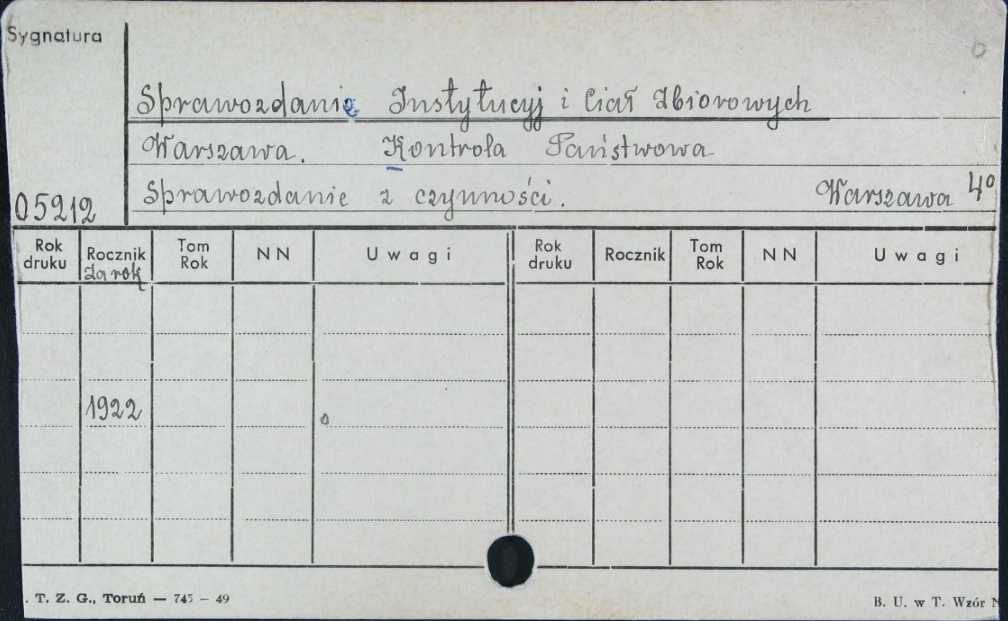 Sygnatura
Sprawozdanie Instytucyj i Ciał Zbiorowych
Warszawa. Kontrola Państwowa
Sprawozdanie z czynności. Warszawa 4°
05212
Rok druku Rocznik Za rok Tom Rok NN Uwagi Rok druku Rocznik Tom Rok NN Uwagi
1922
. T. Z. G., Toruń — 745 – 49 B. U. w T. Wzór N